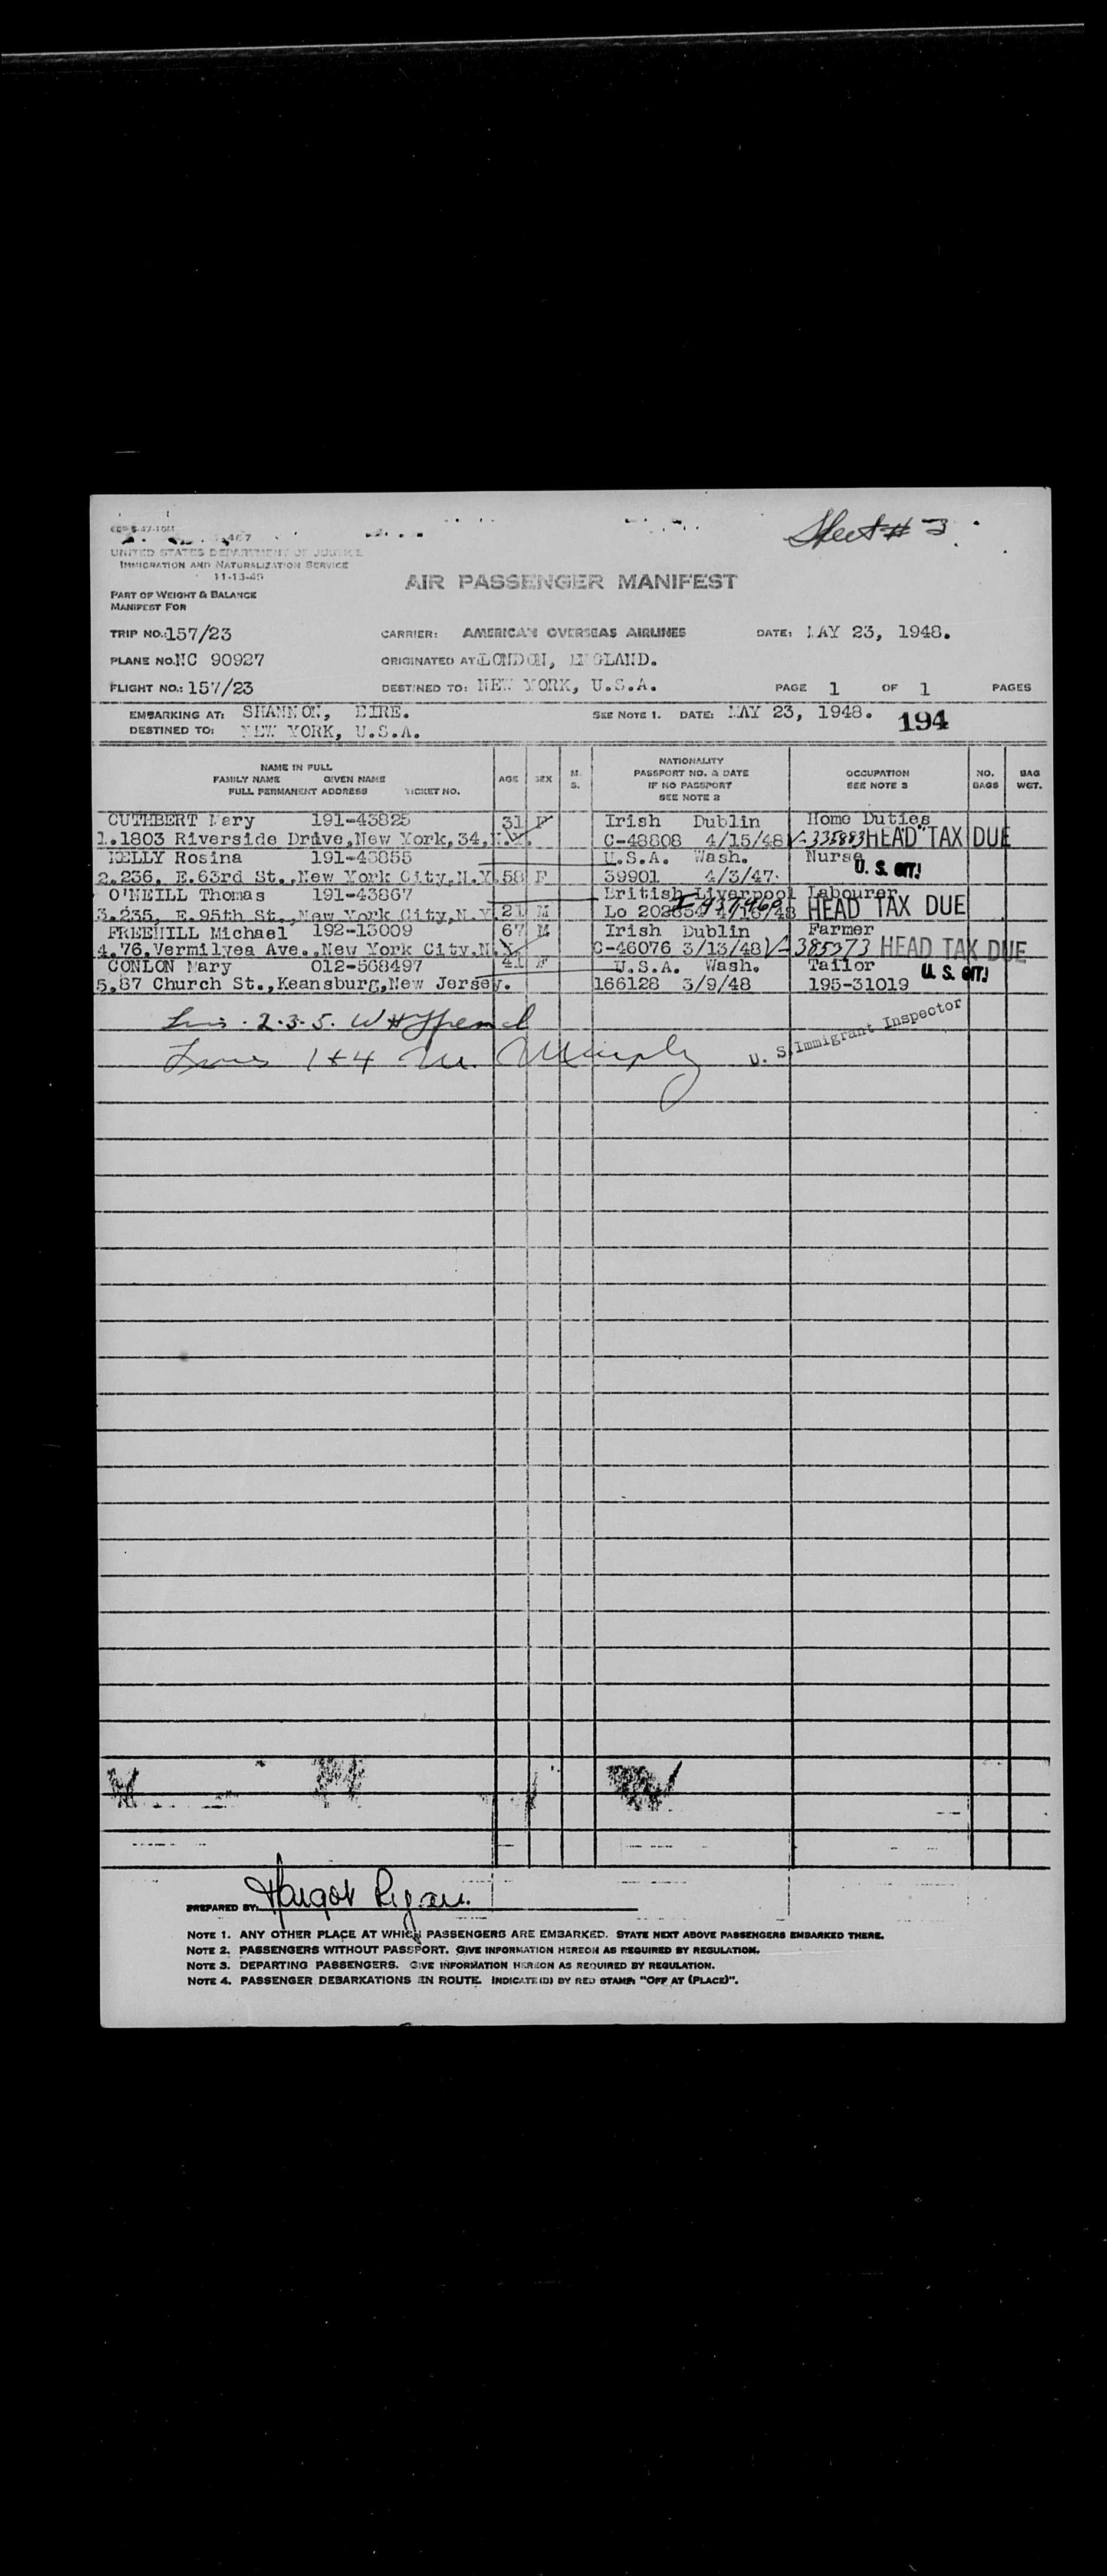 Sheet # 3
UNITED STATES DEPARTMENT OF JUSTICE
IMMIGRATION AND NATURALIZATION SERVICE
11-13-45
AIR PASSENGER MANIFEST
PART OF WEIGHT & BALANCE
MANIFEST FOR
TRIP NO.: 157/23 CARRIER: AMERICAN OVERSEAS AIRLINES DATE: MAY 23, 1948.
PLANE NO. NC 90927 ORIGINATED AT: LONDON, ENGLAND.
FLIGHT NO.: 157/23 DESTINED TO: NEW YORK, U.S.A. PAGE 1 OF 1 PAGES
EMBARKING AT: SHANNON, EIRE. SEE NOTE 1. DATE: MAY 23, 1948. 194
DESTINED TO: NEW YORK, U.S.A.
NAME IN FULL
FAMILY NAME GIVEN NAME
FULL PERMANENT ADDRESS TICKET NO.
AGE
SEX
M.
S.
NATIONALITY
PASSPORT NO. & DATE
IF NO PASSPORT
SEE NOTE 2
OCCUPATION
SEE NOTE 3
NO.
BAGS
BAG
WGT.
CUTHBERT Mary 191-43825 31 F Irish Dublin Home Duties
1.1803 Riverside Drive,New York,34,N.Y. C-48808 4/15/48 V-335883 HEAD TAX DUE
KELLY Rosina 191-43855 U.S.A. Wash. Nurse
2.236, E.63rd St.,New York City,N.Y. 58 F 39901 4/3/47. U. S. CIT.
O'NEILL Thomas 191-43867 British Liverpool Labourer
3.235, E.95th St.,New York City,N.Y. 21 M Lo 202654 4/16/48 HEAD TAX DUE
FREEHILL Michael 192-13009 67 M Irish Dublin Farmer
4.76,Vermilyea Ave.,New York City,N.Y. C-46076 3/13/48 V-385373 HEAD TAX DUE
CONLON Mary 012-568497 41 F U.S.A. Wash. Tailor U. S. CIT.
5.87 Church St.,Keansburg,New Jersey. 166128 3/9/48 195-31019
2.3.5.
Lines 1 & 4 M. Murphy U. S. Immigrant Inspector
PREPARED BY: Margot Ryan.
NOTE 1. ANY OTHER PLACE AT WHICH PASSENGERS ARE EMBARKED. STATE NEXT ABOVE PASSENGERS EMBARKED THERE.
NOTE 2. PASSENGERS WITHOUT PASSPORT. GIVE INFORMATION HEREON AS REQUIRED BY REGULATION.
NOTE 3. DEPARTING PASSENGERS. GIVE INFORMATION HEREON AS REQUIRED BY REGULATION.
NOTE 4. PASSENGER DEBARKATIONS EN ROUTE. INDICATE(D) BY RED STAMP: "OFF AT (PLACE)".